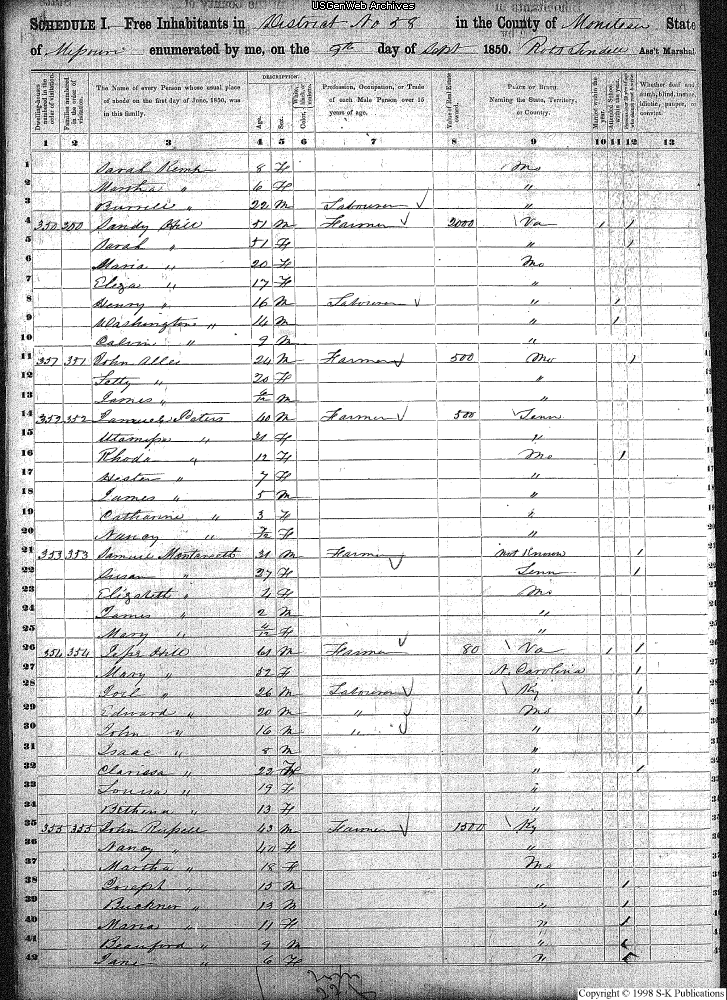 USGenWeb Archives
SCHEDULE I. Free Inhabitants in District No 58 in the County of Moniteau State
of Missouri enumerated by me, on the 9th day of Sept 1850. Ass't Marshal
DESCRIPTION.
Dwelling-houses numbered in the order of visitation.
Families numbered in the order of visitation.
The Name of every Person whose usual place of abode on the first day of June, 1850, was in this family.
Age.
Sex.
Color, White, black or mulatto.
Profession, Occupation, or Trade of each Male Person over 15 years of age.
Value of Real Estate owned.
PLACE OF BIRTH. Naming the State, Territory, or Country.
Married within the year
Attended School within the year
Whether deaf and dumb, blind, insane, idiotic, pauper, or convict.
1 2 3 4 5 6 7 8 9 10 11 12 13
1 Sarah Kemp 8 F Mo
2 Martha " 6 F "
3 Burrell " 22 M Labourer "
4 350 350 Sandy Hill 51 M Farmer 2000 Va 1 1
5 Sarah " 51 F " 1
6 Maria " 20 F Mo
7 Eliza " 17 F "
8 Henry " 16 M Labourer " 1
9 Washington " 14 M " 1
10 Calvin " 9 M "
11 351 351 John 24 M Farmer 500 Mo 1
12 " 20 F "
13 James " M "
14 352 352 Samuel Peters 40 M Farmer 500 Tenn
15 " 31 F "
16 Rhoda " 12 F Mo 1
17 Hester " 7 F "
18 James " 5 M "
19 Catharine " 3 F "
20 Nancy " F "
21 353 353 Samuel 31 M Farmer Not Known 1
22 Susan " 27 F Tenn 1
23 Elizabeth " 4 F Mo
24 James " 2 M "
25 Mary " F "
26 354 354 Hill 61 M Farmer 80 Va 1 1
27 Mary " 52 F N. Carolina 1
28 Joel " 26 M Labourer Ky 1
29 Edward " 20 M " Mo 1
30 John " 16 M " "
31 Isaac " 8 M "
32 Clarissa " 22 F " 1
33 Louisa " 19 F "
34 Bethena " 13 F "
35 355 355 John Russell 43 M Farmer 1500 Ky
36 Nancy " 40 F "
37 Martha " 18 F Mo
38 Joseph " 15 M " 1
39 Buckner " 13 M " 1
40 Maria " 11 F " 1
41 " 9 M "
42 Jane " 6 F "
Copyright © 1998 S-K Publications